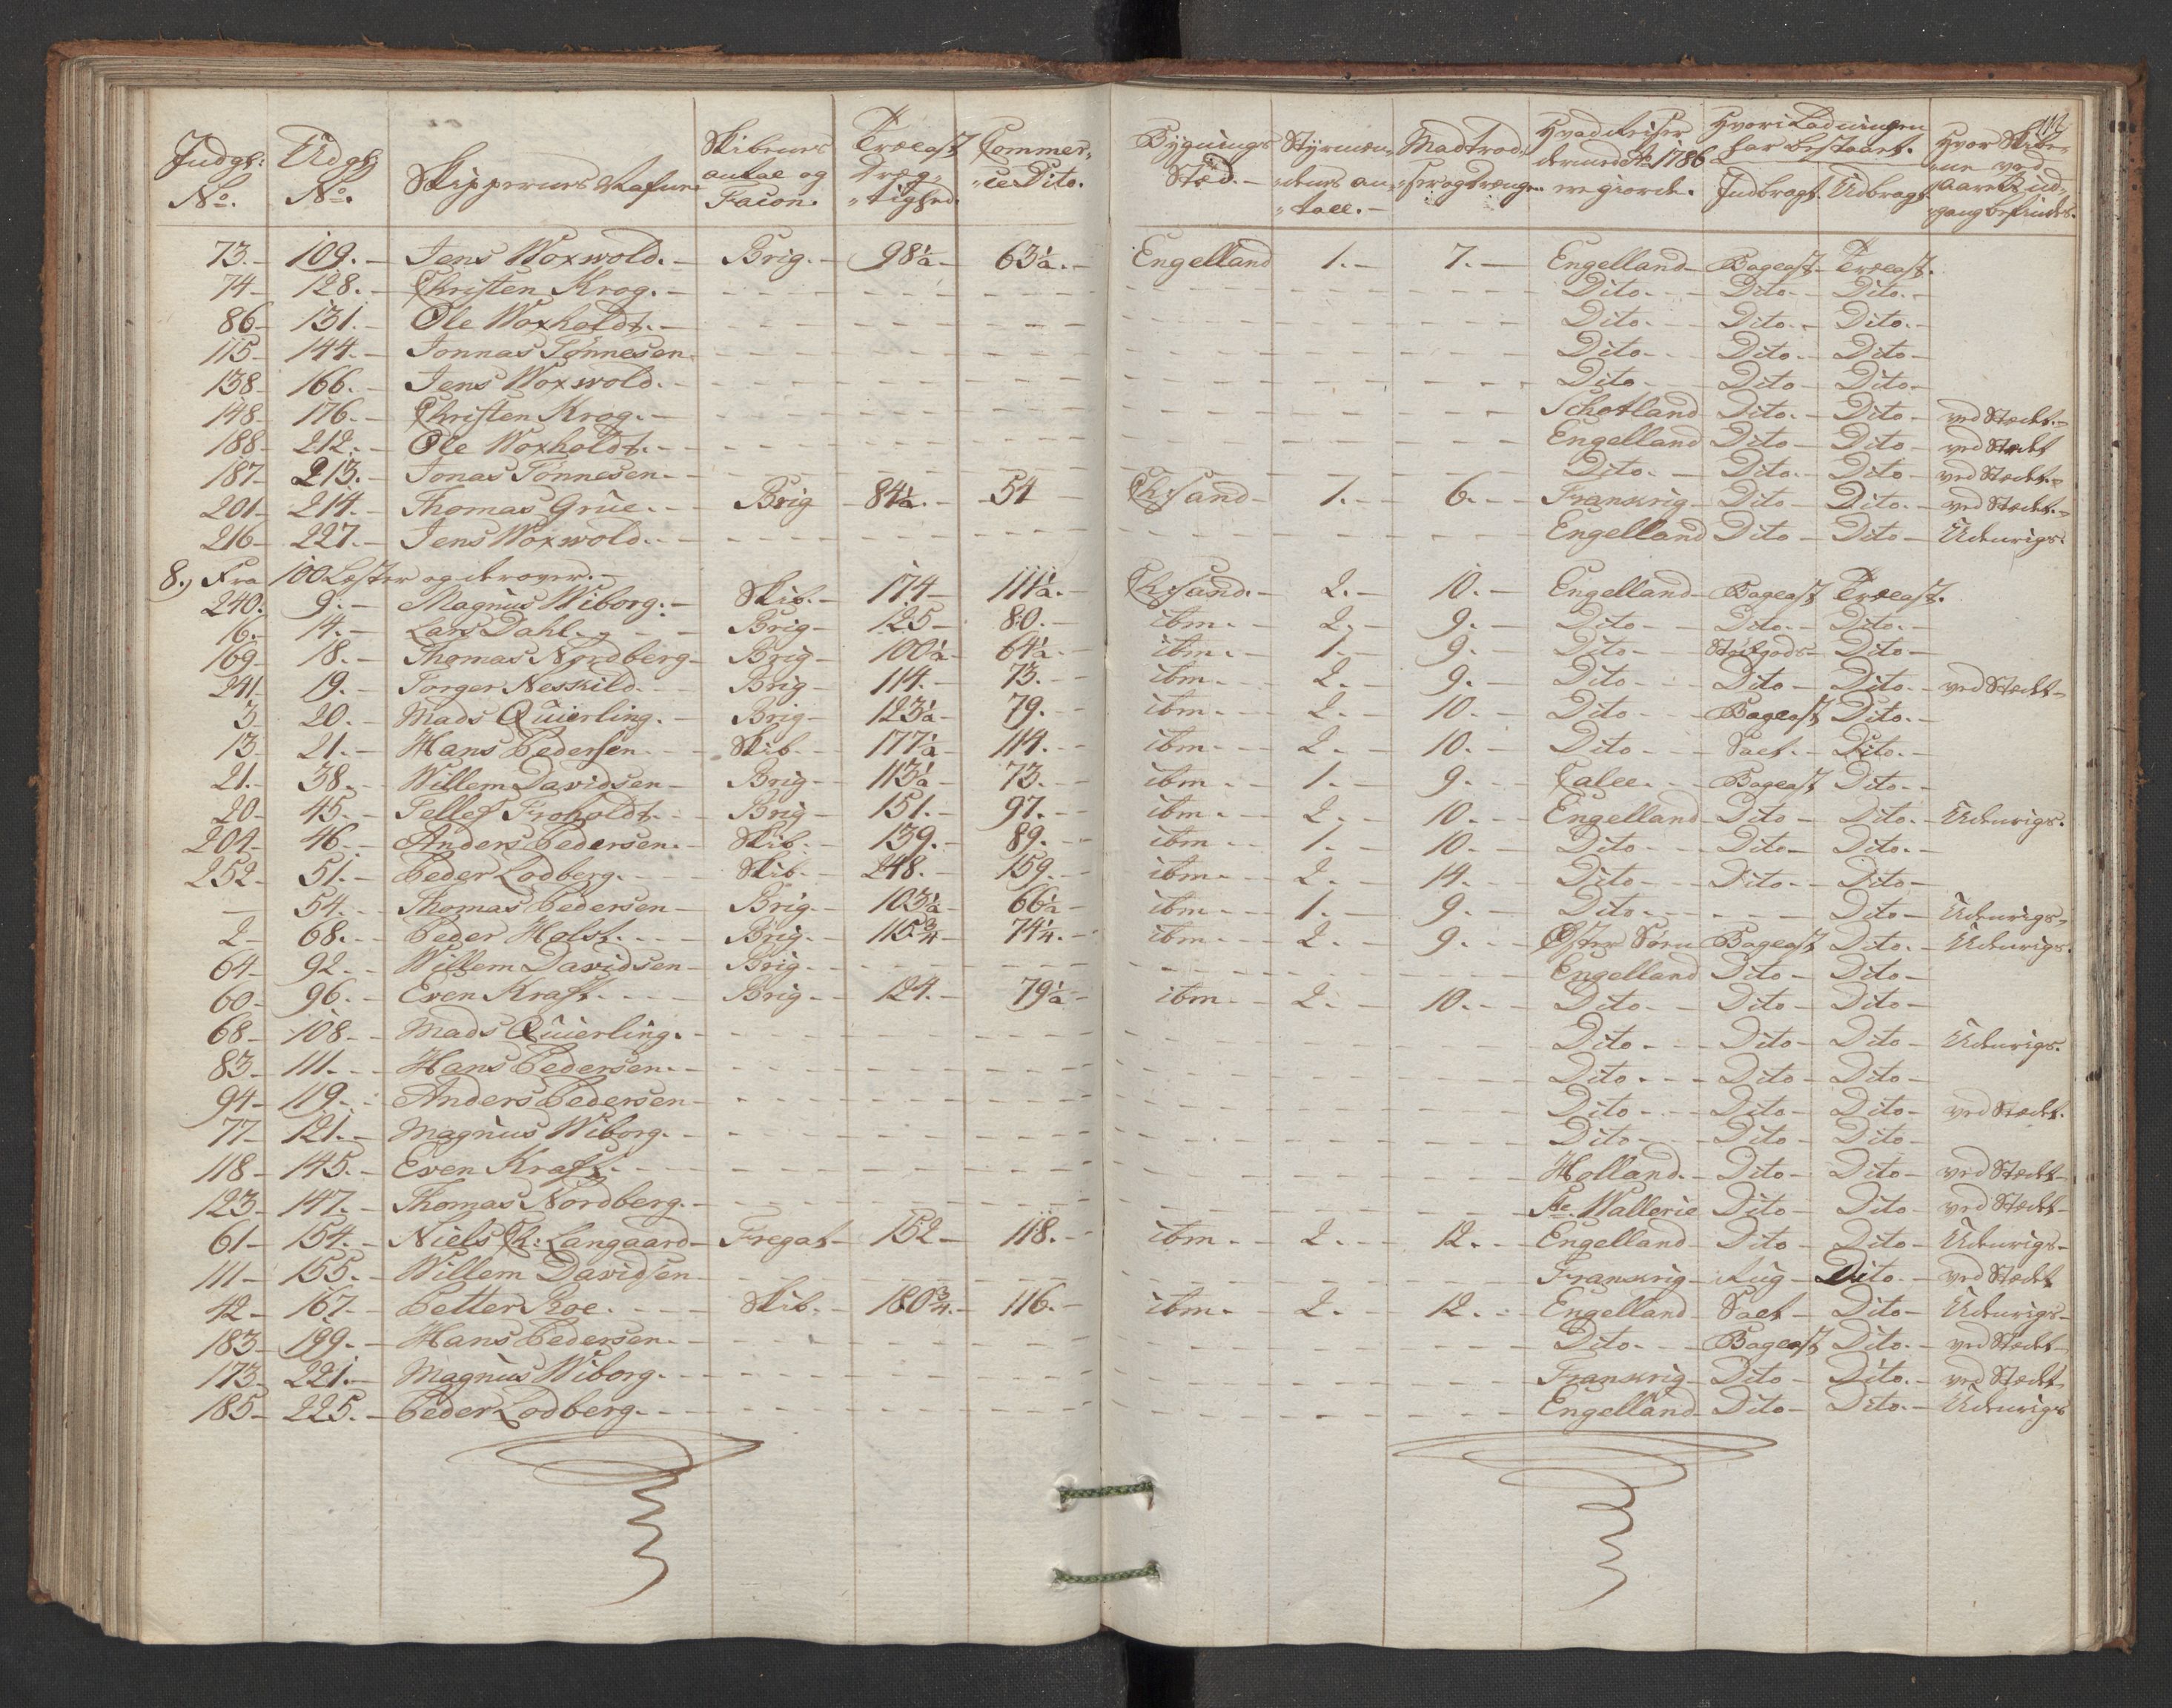 112
Indgh: No. | Udgh: No. | Skippernes Nafne | Skibenes antal og Facon. | Trælast Dræg-tighed. | Commer-ce Dito. | Bygnings Stæd. | Styrmæn-denes an-tall. | Madtrod-ser og drænge | Hvad Reiser dermed Ao 1786 ere giorde. | Hvori Ladningen har bestaaet. Indbragt. | Udbragt | Hvor Skibe-ne ved Aarets Ud-gang befindes.
73.- | 109.- | Jens Woxwold.- | Brig.- | 98½- | 63½.- | Engelland | 1.- | 7.- | Engelland- | Baglast- | Trælast.
74- | 128.- | Christen Krog.- | Dito.- | Dito.- | Dito.-
86- | 131.- | Ole Woxholdt.- | Dito.- | Dito.- | Dito.-
115- | 144.- | Jonnas Tønnesen. | Dito.- | Dito.- | Dito-
138- | 166.- | Jens Woxwold.- | Dito- | Dito- | Dito-
148- | 176.- | Christen Krog.- | Schotland | Dito.- | Dito- | ved Stædt.-
188- | 212.- | Ole Woxholdt.- | Engelland | Dito- | Dito- | ved Stædt
187- | 213.- | Jonas Tønnesen.- | Dito.- | Dito.- | Dito- | ved Stædt.-
201- | 214.- | Thomas Grüe.- | Brig | 84½.- | 54 | Chrsand- | 1.- | 6.- | Frankrig- | Dito- | Dito.- | ved Stædt.-
216- | 227.- | Jens Woxwold.- | Engelland | Dito- | Dito- | Udenrigs.
8.) Fra 100 Læster og derover.-
240. | 9.- | Magnus Wiborg.- | Skib.- | 174- | 111½.- | Chrsand.- | 2.- | 10.- | Engelland- | Baglast | Trælast.
16.- | 14.- | Lars Dahl.- | Brig- | 125- | 80.- | ibm.- | 2.- | 9.- | Dito- | Dito.- | Dito.-
169- | 18.- | Thomas Nordberg- | Brig- | 100½- | 64½.- | ibm.- | 1.- | 9.- | Dito- | Stükgods- | Dito-
241- | 19.- | Torger Neskild.- | Brig- | 114.- | 73.- | ibm.- | 2.- | 9.- | Dito- | Dito- | Dito.- | ved Stædt-
3- | 20.- | Mads Qüierling.- | Brig- | 123½- | 79.- | ibm.- | 2.- | 10.- | Dito- | Baglast | Dito.-
13- | 21.- | Hans Pedersen.- | Skib.- | 177½- | 114.- | ibm.- | 2.- | 10.- | Dito- | Salt.- | Dito.-
21.- | 38.- | Willem Davidsen- | Brig- | 113½- | 73.- | ibm.- | 1.- | 9.- | Calee.- | Baglast | Dito.-
20- | 45.- | Tellef Froholdt.- | Brig- | 151.- | 97.- | ibm.- | 2.- | 10.- | Engelland | Dito- | Dito.- | Udenrigs.
204- | 46.- | Anders Pedersen.- | Skib.- | 139.- | 89.- | ibm.- | 1.- | 10.- | Dito- | Dito- | Dito.-
252- | 51.- | Peder Lodberg.- | Skib.- | 248.- | 159.- | ibm.- | 2.- | 14.- | Dito- | Dito.- | Dito-
- | 54.- | Thomas Pedersen- | Brig- | 103½- | 66½- | ibm.- | 1.- | 9.- | Dito.- | - | Dito- | Udenrigs-
2- | 68.- | Peder Holst.- | Brig.- | 115¾- | 74¼.- | ibm.- | 2.- | 9.- | Øster Søen | Baglast | Dito.- | Udenrigs.
64- | 92.- | Willem Davidsen- | Brig.- | Engelland | Dito- | Dito-
60- | 96.- | Even Kraft.- | Brig- | 124.- | 79½- | ibm.- | 2.- | 10.- | Dito- | Dito- | Dito-
68- | 108.- | Mads Qüierling.- | Dito- | Dito- | Dito- | Udenrigs.
83- | 111.- | Hans Pedersen.- | Dito.- | Dito- | Dito-
94- | 119.- | Anders Pedersen- | Dito- | Dito- | Dito- | ved Stædt.
77- | 121.- | Magnus Wiborg.- | Dito- | Dito- | Dito-
118- | 145.- | Even Kraft.- | Holland.- | Dito- | Dito- | ved Stædt-
123- | 147.- | Thomas Nordberg.- | Ste. Wallerie | Dito- | Dito- | ved Stædt-
61- | 154.- | Niels Ch: Langaard- | Fregat- | 152- | 118.- | ibm.- | 2.- | 12.- | Engelland- | Dito- | Dito- | Udenrigs-
111- | 155.- | Willem Davidsen- | Frankrig- | Rüg- | Dito.- | ved Stædt
42- | 167.- | Petter Roe.- | Skib.- | 180¾.- | 116.- | ibm.- | 2.- | 12.- | Engelland | Salt- | Dito- | Udenrigs-
183- | 199.- | Hans Pedersen.- | Dito.- | Baglast | Dito.- | ved Stædt-
173- | 221.- | Magnus Wiborg.- | Frankrig- | Dito- | Dito.- | ved Stædt-
185- | 225.- | Peder Lodberg.- | Engelland- | Dito- | Dito.- | Udenrigs